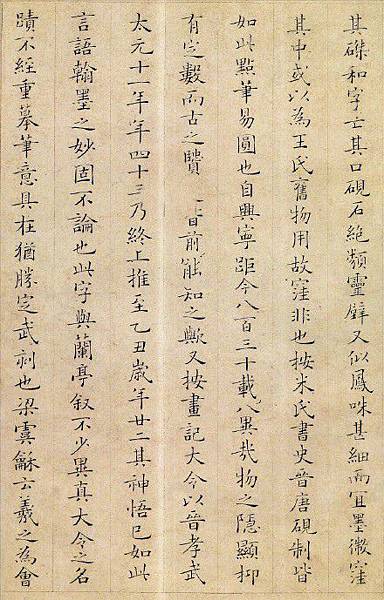 其磔和字亡其口硯石絶類靈璧又似鳳咮甚細而宜墨微窪
其中或以為王氏舊物用故窪非也按米氏書史晉唐硯制皆
如此點筆易圓也自興寧距今八百三十載八異哉物之隱顯抑
有定數而古之賢百前能知之歟又按畫記大令以晉孝武
太元十一年年四十三乃終上推至乙丑歲年廿二其神悟已如此
言語翰墨之妙固不論也此字與蘭亭叙不少異真大令之名
蹟不經重摹筆意具在猶勝定武刻也梁虞龢云羲之為會